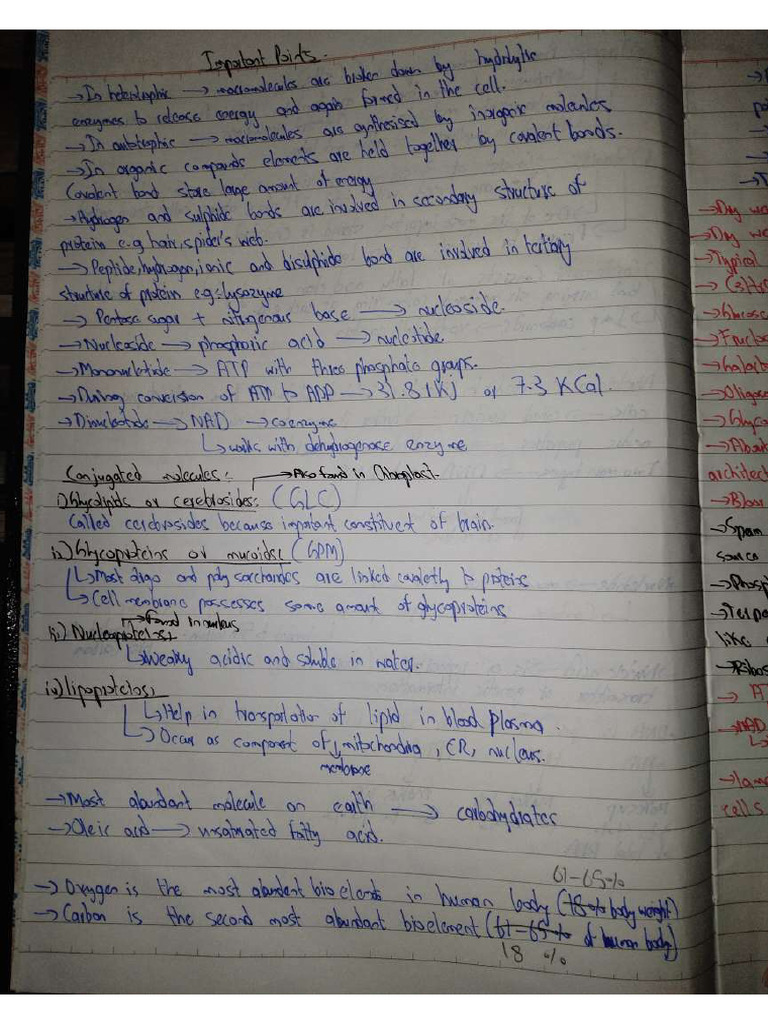 Important Points.
→In heterotrophic → macromolecules are broken down by hydrolytic
enzymes to release energy and again formed in the cell.
→In autotrophic → macromolecules are synthesised by inorganic molecules
→In organic compounds elements are held together by covalent bonds.
Covalent bond store large amount of energy
→Hydrogen and sulphide bonds are involved in secondary structure of
protein e.g hair, spider's web.
→Peptide, hydrogen, ionic and disulphide bond are involved in tertiary
structure of protein e.g:-lysozyme
→ Pentose sugar + nitrogenous base → nucleoside.
→Nucleoside → phosphoric acid → nucleotide.
→Mononucleotide → ATP with three phosphate groups.
→During conversion of ATP to ADP → 31.81KJ or 7.3 KCal
→Dinucleotide → NAD → coenzyme
↳ works with dehydrogenase enzyme
Conjugated molecules:- → Also found in Chloroplast.
i) Glycolipids or cerebrosides: (GLC)
Called cerebrosides because important constituent of brain.
ii) Glycoproteins or mucoids: (GPM)
↳ Most oligo and poly saccharides are linked covalently to proteins
↳ Cell membrane possesses some amount of glycoproteins
→ Found in nucleus
iii) Nucleoproteins,
↳ weakly acidic and soluble in water.
iv) lipoproteins,
↳ Help in transportation of lipid in blood plasma.
↳ Occur as component of ↓ mitochondria, ER, nucleus.
membrane
→ Most abundant molecule on earth → carbohydrates
→ Oleic acid → unsaturated fatty acid.
61-65%
→ Oxygen is the most abundant bio elements in human body (18% body weight)
→ Carbon is the second most abundant bioelement (61-65% of human body)
18 %
→Dry
→Dry
→Typical
→Glucose
→
→Oligos
→Glyco
→About
architect
→Bloo
→Sperm
source
→Phosp
→Terpe
like
→Ribos
→ AT
→NAD
cells